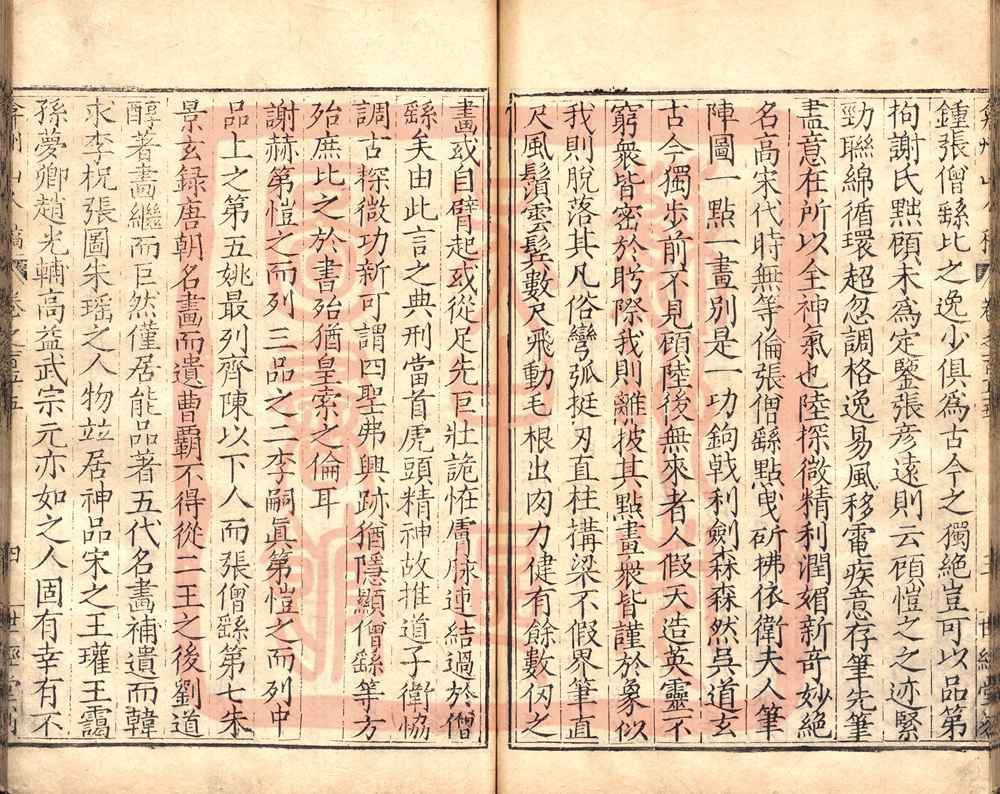 鍾張僧繇比之逸少俱為古今之獨絕豈可以品第
拘謝氏黜頋未為定鑒張彦遠則云頋愷之之迹緊
勁聯綿循環超忽調格逸易風移電疾意存筆先筆
盡意在所以全神氣也陸探微精利潤媚新竒妙絕
名高宋代時無等倫張僧繇點曳斫拂依衛夫人筆
陣圖一點一畫別是一功鉤戟利劍森森然吳道玄
古今獨步前不見頋陸後無來者人假天造英靈不
窮衆皆密於盻際我則離披其點畫衆皆謹於象似
我則脫落其凡俗彎弧挺刃直柱搆梁不假界筆直
尺風鬚雲鬂數尺飛動毛根出肉力健有餘數仭之
畫或自臂起或從足先巨壯詭怪膚脉連結過於僧
繇矣由此言之典刑當首虎頭精神故推道子衛協
調古探微功新可謂四聖弗興跡猶隱顯僧繇等方
殆庶比之於書殆猶皇索之倫耳
謝赫第愷之而列三品之二李嗣真第愷之而列中
品上之第五姚最列齊陳以下人而張僧繇第七朱
景玄録唐朝名畫而遺曹霸不得從二王之後劉道
醇著畫繼而巨然僅居能品著五代名畫補遺而韓
求李柷張圖朱瑶之人物竝居神品宋之王瓘王靄
孫夢卿趙光輔高益武宗元亦如之人固有幸有不
卷之
四
世經堂刻